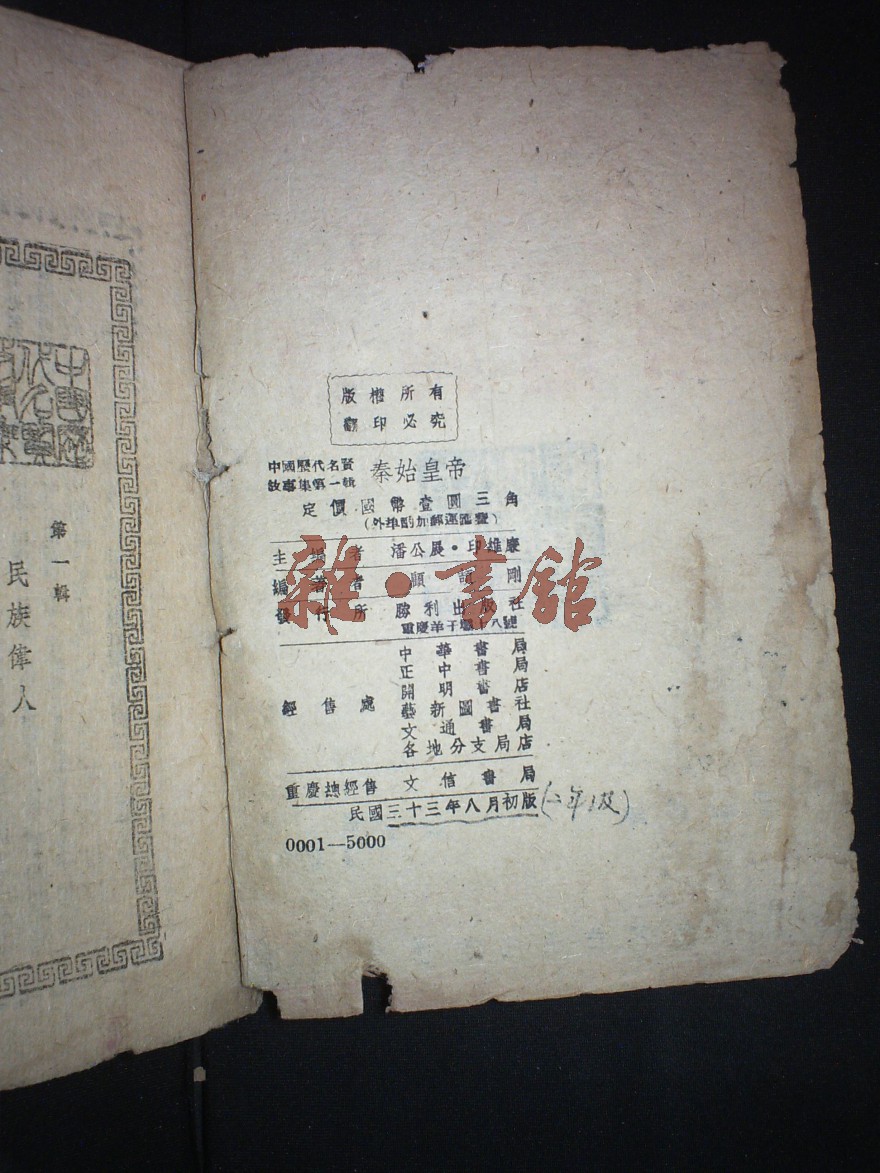 版權所有
翻印必究
中國歷代名賢
故事集第一輯
秦始皇帝
定價國幣壹圓三角
(外埠酌加郵運匯費)
主編者 潘公展・印維廉
編著者 顧頡剛
發行所 勝利出版社
重慶羊子壩十八號
經售處
中華書局
正中書局
開明書店
藝新圖書社
文通書局
各地分支局店
重慶總經售 文信書局
民國三十三年八月初版
0001—5000
第一輯
民族偉人
雜・書館